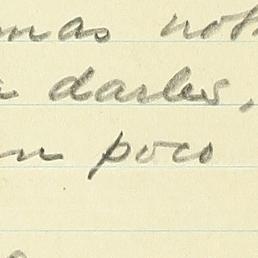 mas not
a darles,
un poco